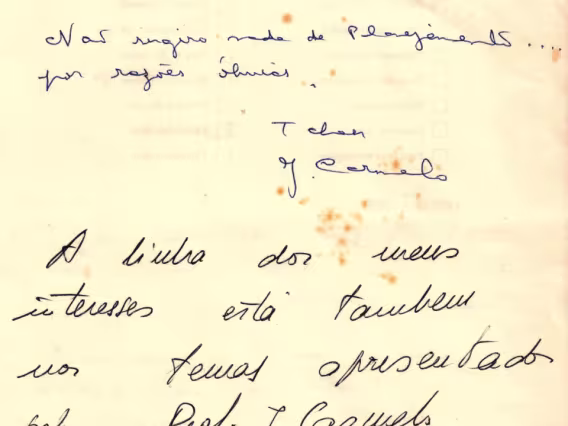 Não sugiro nada de Planejamento....
por razões óbvias.
Tchau
J. Carmelo
A linha dos meus
interesses está tambem
nos temas apresentados
pelo Prof. J Carmelo